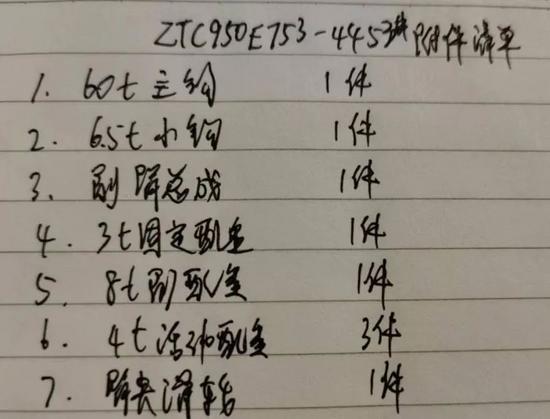 ZTC950E753-4453# 附件清单
1. 60t 主钩 1件
2. 6.5t 小钩 1件
3. 副臂总成 1件
4. 3t固定配重 1件
5. 8t副配重 1件
6. 4t活动配重 3件
7. 臂尖滑轮 1件